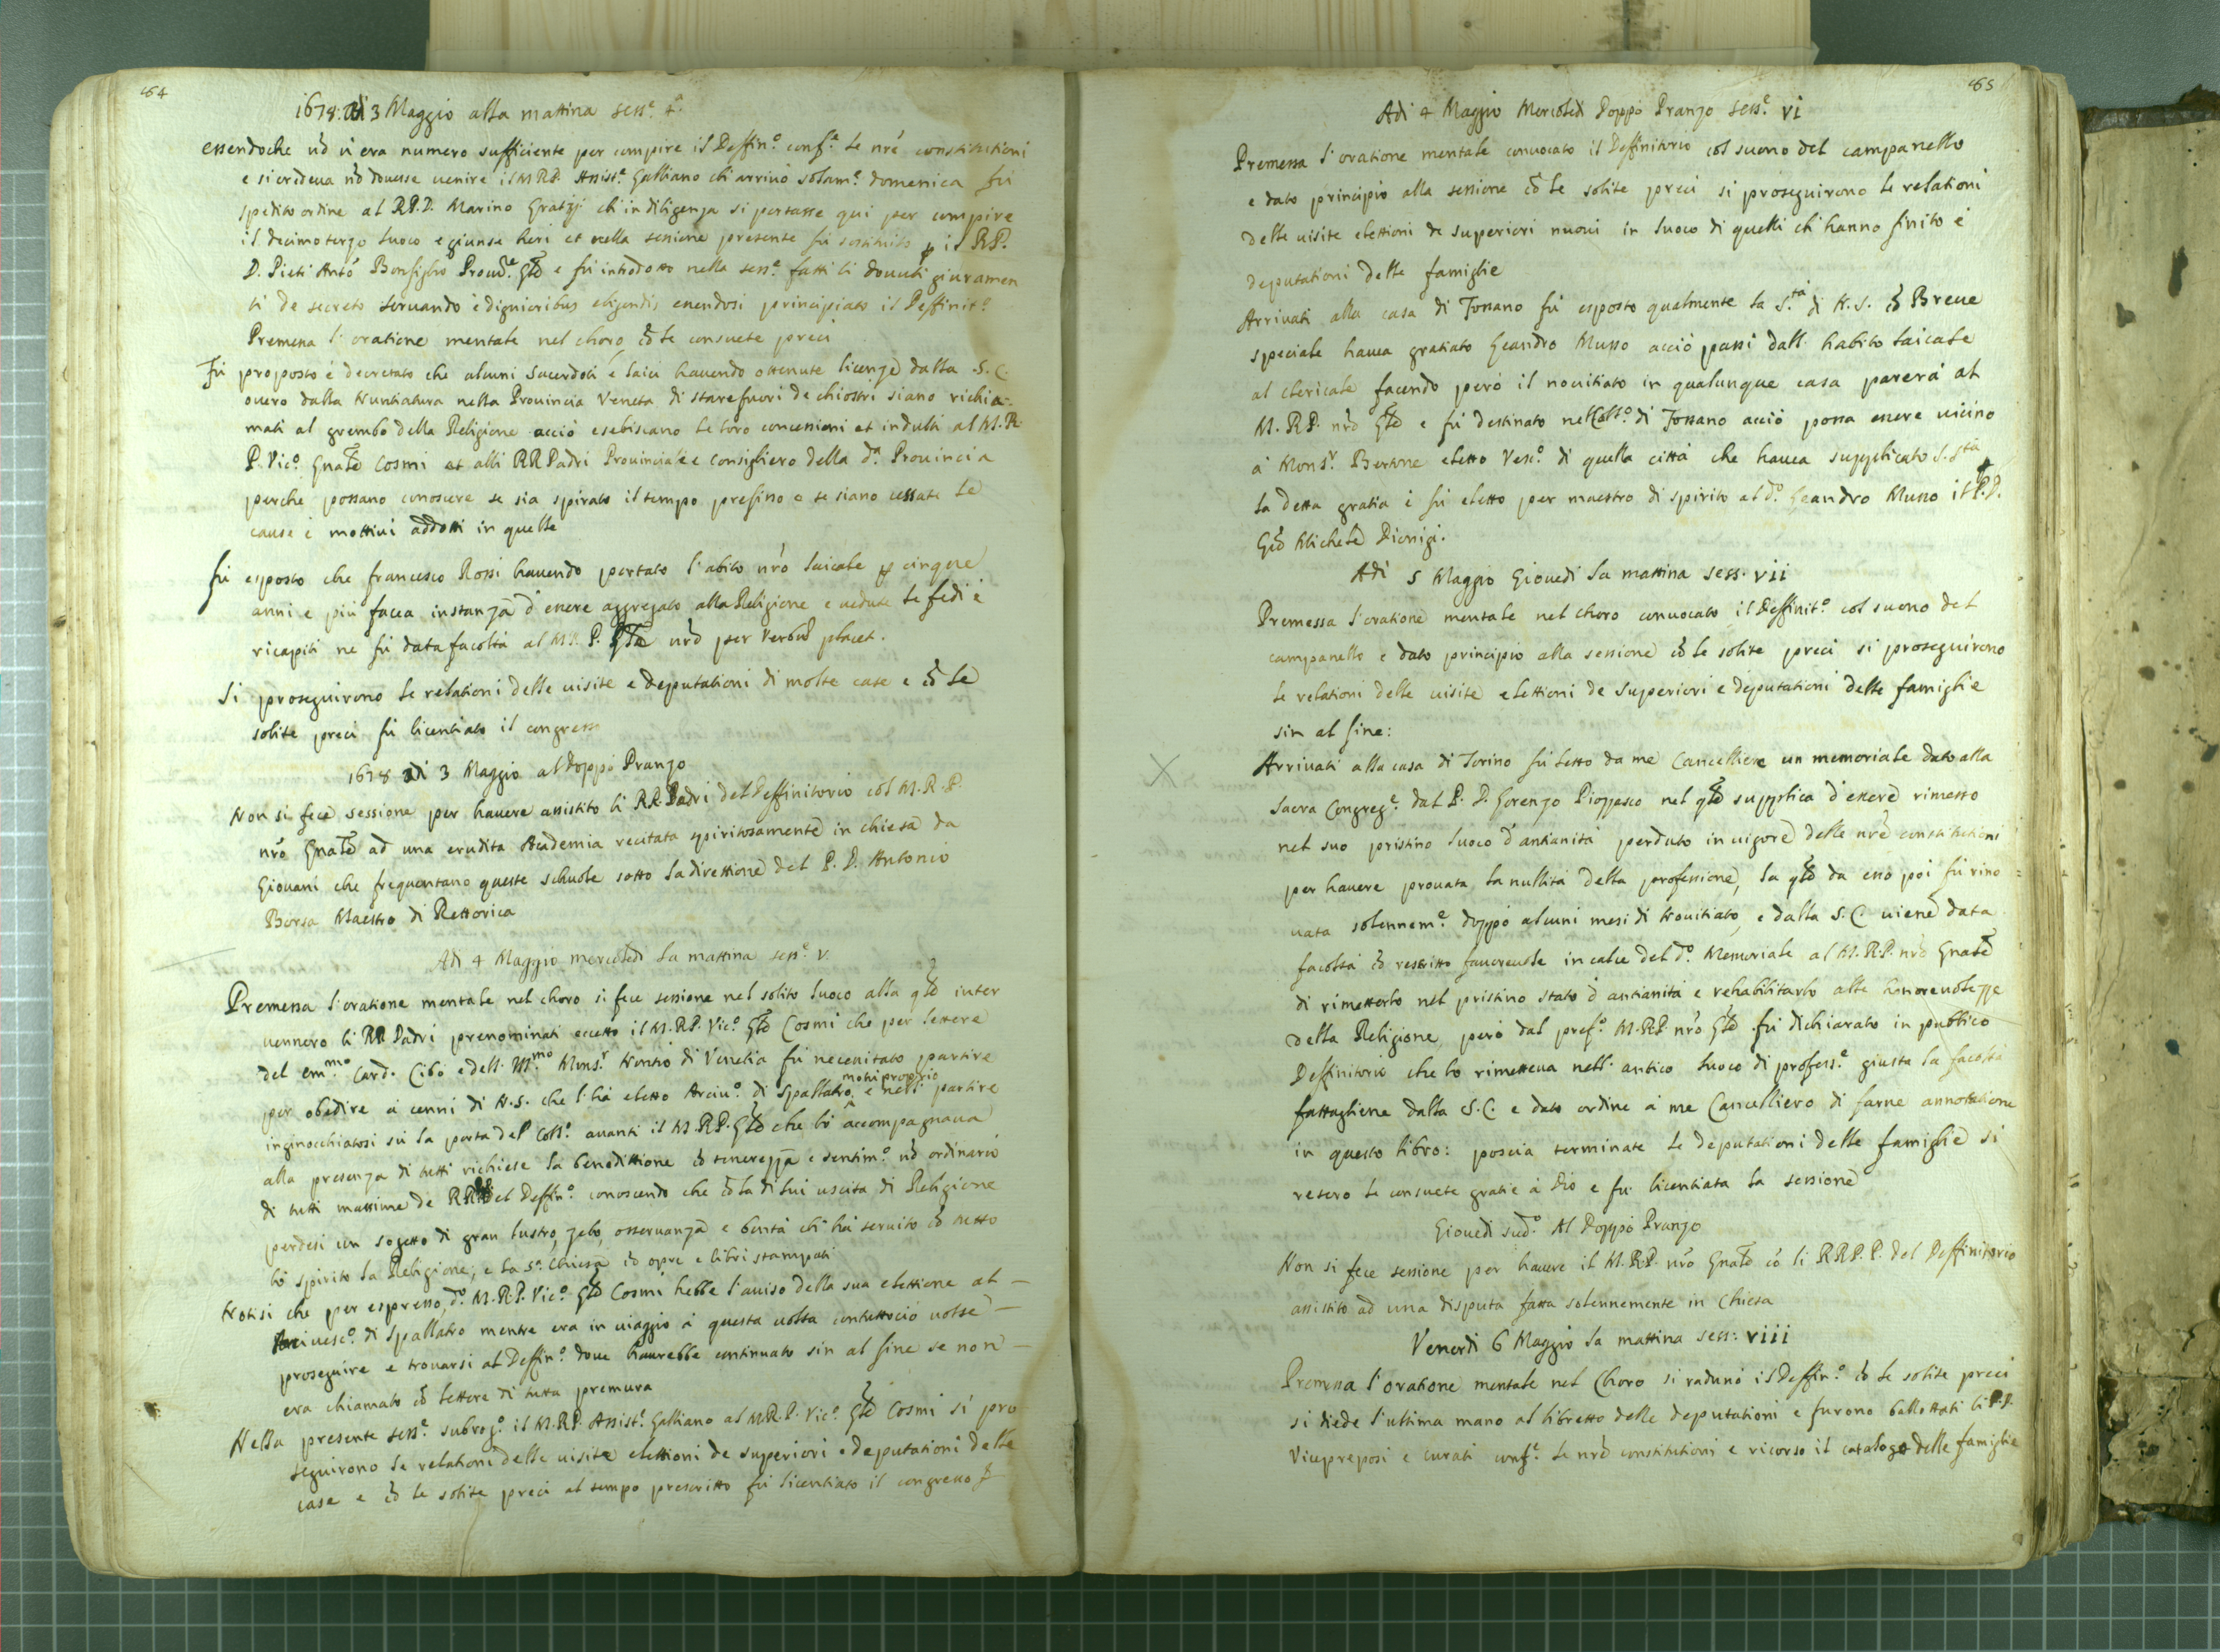 164
1678. Adi 3 Maggio alla mattina sess.e 4.a
essendoche nō u'era numero sufficiente per compire il Deffin.o conf.e le nr̃e constitutioni
e si credeua nō douesse uenire il M.R.P. Assist.e Galliano ch'arriuò solam.e domenica fù
spedito ordine al R.P.D. Marino ch'in diligenza si portasse qui per compire
il decimoterzo luoco e giunse heri et nella sessione presente fù sostituito p il R.P.
D. Pietr'Antō Bonfiglio Prou.le e fù introdotto nella sess.e fatti li douuti giuramen
ti de secreto seruando e dignioribus eligendis essendosi principiato il Deffinit.o
Premessa l'oratione mentale nel choro, cō le consuete preci
Fù proposto è decretato che alcuni Sacerdoti e laici hauendo ottenute licenze dalla S.C.
ouero dalla Nuntiatura nella Prouincia Veneta di stare fuori de chiostri siano richia-
mati al grembo della Religione acciò esebiscano le loro concessioni et indulti al M.R.
P. Vic.o Gnāle Cosmi et alli RR Padri Prouinciale e Consigliero della d.a Prouincia
perche possano conoscere se sia spirato il tempo prefisso o se siano cessate le
cause è mottiui addotti in quelle
Fù esposto che francesco Rossi hauendo portato l'abito nr̃o laicale p cinque
anni e più facea instanza d'essere aggregato alla Religione e uedute le fedi è
ricapiti ne fù data facoltà al M.R.P. Gñle nr̃o per verbū placet.
Si proseguirono le relationi delle uisite e deputationi di molte case e cō le
solite preci fù licentiato il congresso
1678 adi 3 Maggio al doppo Pranzo
Non si fece sessione per hauere assistito li RR. Padri del Deffinitorio col M.R.P.
nr̃o Gnāle ad una erudita Academia recitata spiritosamente in chiesa da
Giouani che frequentano queste schuole sotto la direttione del P.D. Antonio
Borsa Maestro di Rettorica
Adi 4 Maggio mercoledi la mattina sess.e v.
Premessa l'oratione mentale nel choro si fece sessione nel solito luoco alla qle inter
uennero li RR Padri prenominati eccetto il M.R.P. Vic.o Gñle Cosmi che per lettere
del em.mo Card. Cibo e dell' Ill.mo Mons.r Nontio di Venetia fù necessitato partire
per obedire à cenni di N.S. che l'hà eletto Arciu.o di Spallatro motu proprio e nell partire
inginocchiatosi sù la porta del Coll.o auanti il M.R.P. Gñle che lo accompagnaua
alla presenza di tutti richiese la benedittione cō tenerezza e sentim.o nō ordinario
di tutti massime de RR. del Deffin.o conoscendo che cō la di lui uscita di Religione
perdesi un sogetto di gran lustro, zelo, osseruanza e bontà ch'hà seruito cō tutto
lo spirito la Religione, e la S.a Chiesa cō opre e libri stampati
Notisi che per espresso, d.o M.R.P. Vic.o Gñle Cosmi hebbe l'auiso della sua elettione al —
Arciuesc.o di Spallatro mentre era in uiaggio à questa uolta contuttociò uolse —
proseguire e trouarsi al Deffin.o doue haurebbe continuato sin al fine se non —
era chiamato cō lettere di tutta premura
Nella presente sess.e subrog.o il M.R.P. Assist.e Galliano al M.R.P. Vic.o Gñle Cosmi si pro
seguirono le relationi delle uisite elettioni de superiori e deputationi delle
case e cō le solite preci al tempo prescritto fù licentiato il congresso
165
Adi 4 Maggio Mercoledi doppo Pranzo sess.e vi
Premessa l'oratione mentale conuocato il Deffinitorio col suono del campanello
e dato principio alla sessione cō le solite preci si proseguirono le relationi
delle uisite elettioni de superiori nuoui in luoco di quelli ch'hanno finito è
deputationi delle famiglie
Arriuati alla casa di Fossano fù esposto qualmente la S.tà di N.S. cō Breue
speciale hauea gratiato Geandro Musso acciò passi dall' habito laicale
al clericale facendo però il nouitiato in qualunque casa parerà al
M.R.P. nr̃o Gñle e fù destinato nel Coll.o di Fossano acciò possa essere uicino
à Mons.r Bertone eletto Vesc.o di quella città che hauea supplicato S.Stà
la detta gratia è fù eletto per maestro di spirito al d.o Geandro Musso il P.D.
Gio Michele Dionigi.
Adi 5 Maggio Giouedi la mattina sess. vii
Premessa l'oratione mentale nel choro conuocato il Deffinit.o col suono del
campanello e dato principio alla sessione cō le solite preci si proseguirono
le relationi delle uisite elettioni de superiori e deputationi delle famiglie
sin al fine:
X Arriuati alla casa di Torino fù letto da me Cancelliere un memoriale dato alla
Sacra Congreg.e dal P.D. Lorenzo Piozzasco nel qle supplica d'essere rimesso
nel suo pristino luoco d'antianità perduto in uigore delle nr̃e constitutioni
per hauere prouata la nullità della professione, la qle da esso poi fù rino
uata solennem.e doppo alcuni mesi di Nouitiato, e dalla S.C. uiene data
facoltà cō rescritto fauoreuole in calce del d.o Memoriale al M.R.P. nr̃o Gnāle
di rimetterlo nel pristino stato d'antianità e rehabilitarlo alle honoreuolezze
della Religione, però dal pref.o M.R.P. nr̃o Gñle fù dichiarato in publico
Deffinitorio che lo rimetteua nell' antico luoco di profess.e giusta la facoltà
fattagliene dalla S.C. e dato ordine à me Cancelliero di farne annotatione
in questo libro: poscia terminate le deputationi delle famiglie si
resero le consuete gratie à Dio e fù licentiata la sessione
Giouedi sud.o Al Doppo Pranzo
Non si fece sessione per hauere il M.R.P. nr̃o Gnāle cō li RR.P.P. del Deffinitorio
assistito ad una disputa fatta solennemente in Chiesa
Venerdi 6 Maggio la mattina sess: viii
Premessa l'oratione mentale nel Choro si radunò il Deffin.o cō le solite preci
si diede l'ultima mano al libretto delle deputationi e furono ballottati li P.P.
Viceprepositi e curati conf.e le nr̃e constitutioni e ricorso il catalogo delle famiglie